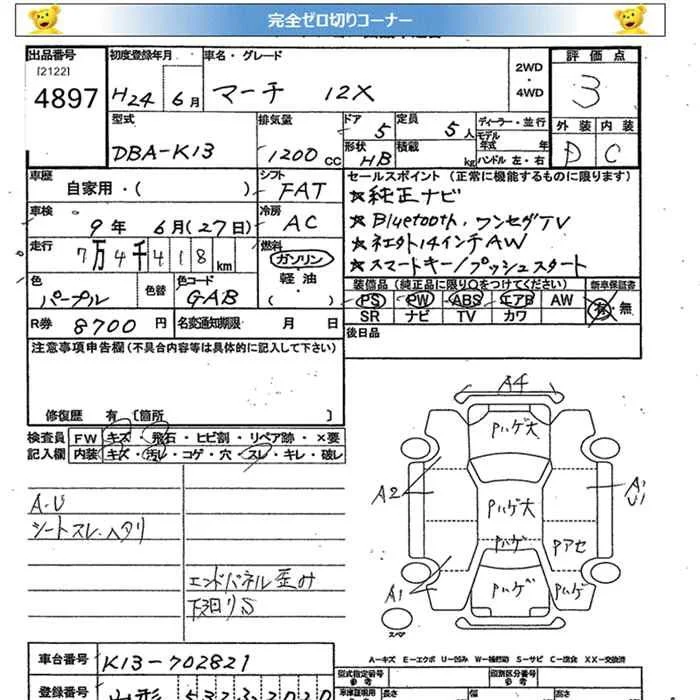 完全ゼロ切りコーナー
出品番号 初度登録年月 車名・グレード 評価点
[2122]
4897 H24 6月 マーチ 12X 2WD・4WD 3
型式 排気量 ドア 5 定員 5人 ディーラー・並行 外装 内装
DBA-K13 1200cc 形状 HB 積載 kg モデル年式 年 ハンドル 左・右 D C
車歴 自家用・( ) シフト FAT セールスポイント (正常に機能するものに限ります)
☆純正ナビ
車検 9年 6月(27日) 冷房 AC ☆Bluetooth, ワンセグTV
走行 7万4千418km 燃料 ガソリン ☆社外14インチAW
軽油 ☆スマートキー/プッシュスタート
色 パープル 色替 色コード GAB ( ) 装備品 (純正品に限り○をつけてください) 新車保証書
PS PW ABS エアB AW 有・無
R券 8700円 名変通知期限 月 日 SR ナビ TV カワ
注意事項申告欄 (不具合内容等は具体的に記入して下さい) 後日品
修復歴 有 [箇所 ]
検査員 FW キズ・飛石・ヒビ割・リペア跡・×要
記入欄 内装 キズ・汚レ・コゲ・穴・スレ・キレ・破レ
A・U
シートスレ、ヘタリ
エンドパネル歪み
下廻りS
A4
Pハゲ大
A2
A1
U1
Pハゲ大
Pハゲ
Pアセ
A1
Pハゲ
Pハゲ
スペア
A-キズ E-エクボ U-凹み W-補修跡 S-サビ C-腐食 XX-交換済
車台番号 K13-702821 型式指定番号 参考 類別区分番号 参考
登録番号 山形 532 さ 2020 車庫証明用 長さ 幅 高さ